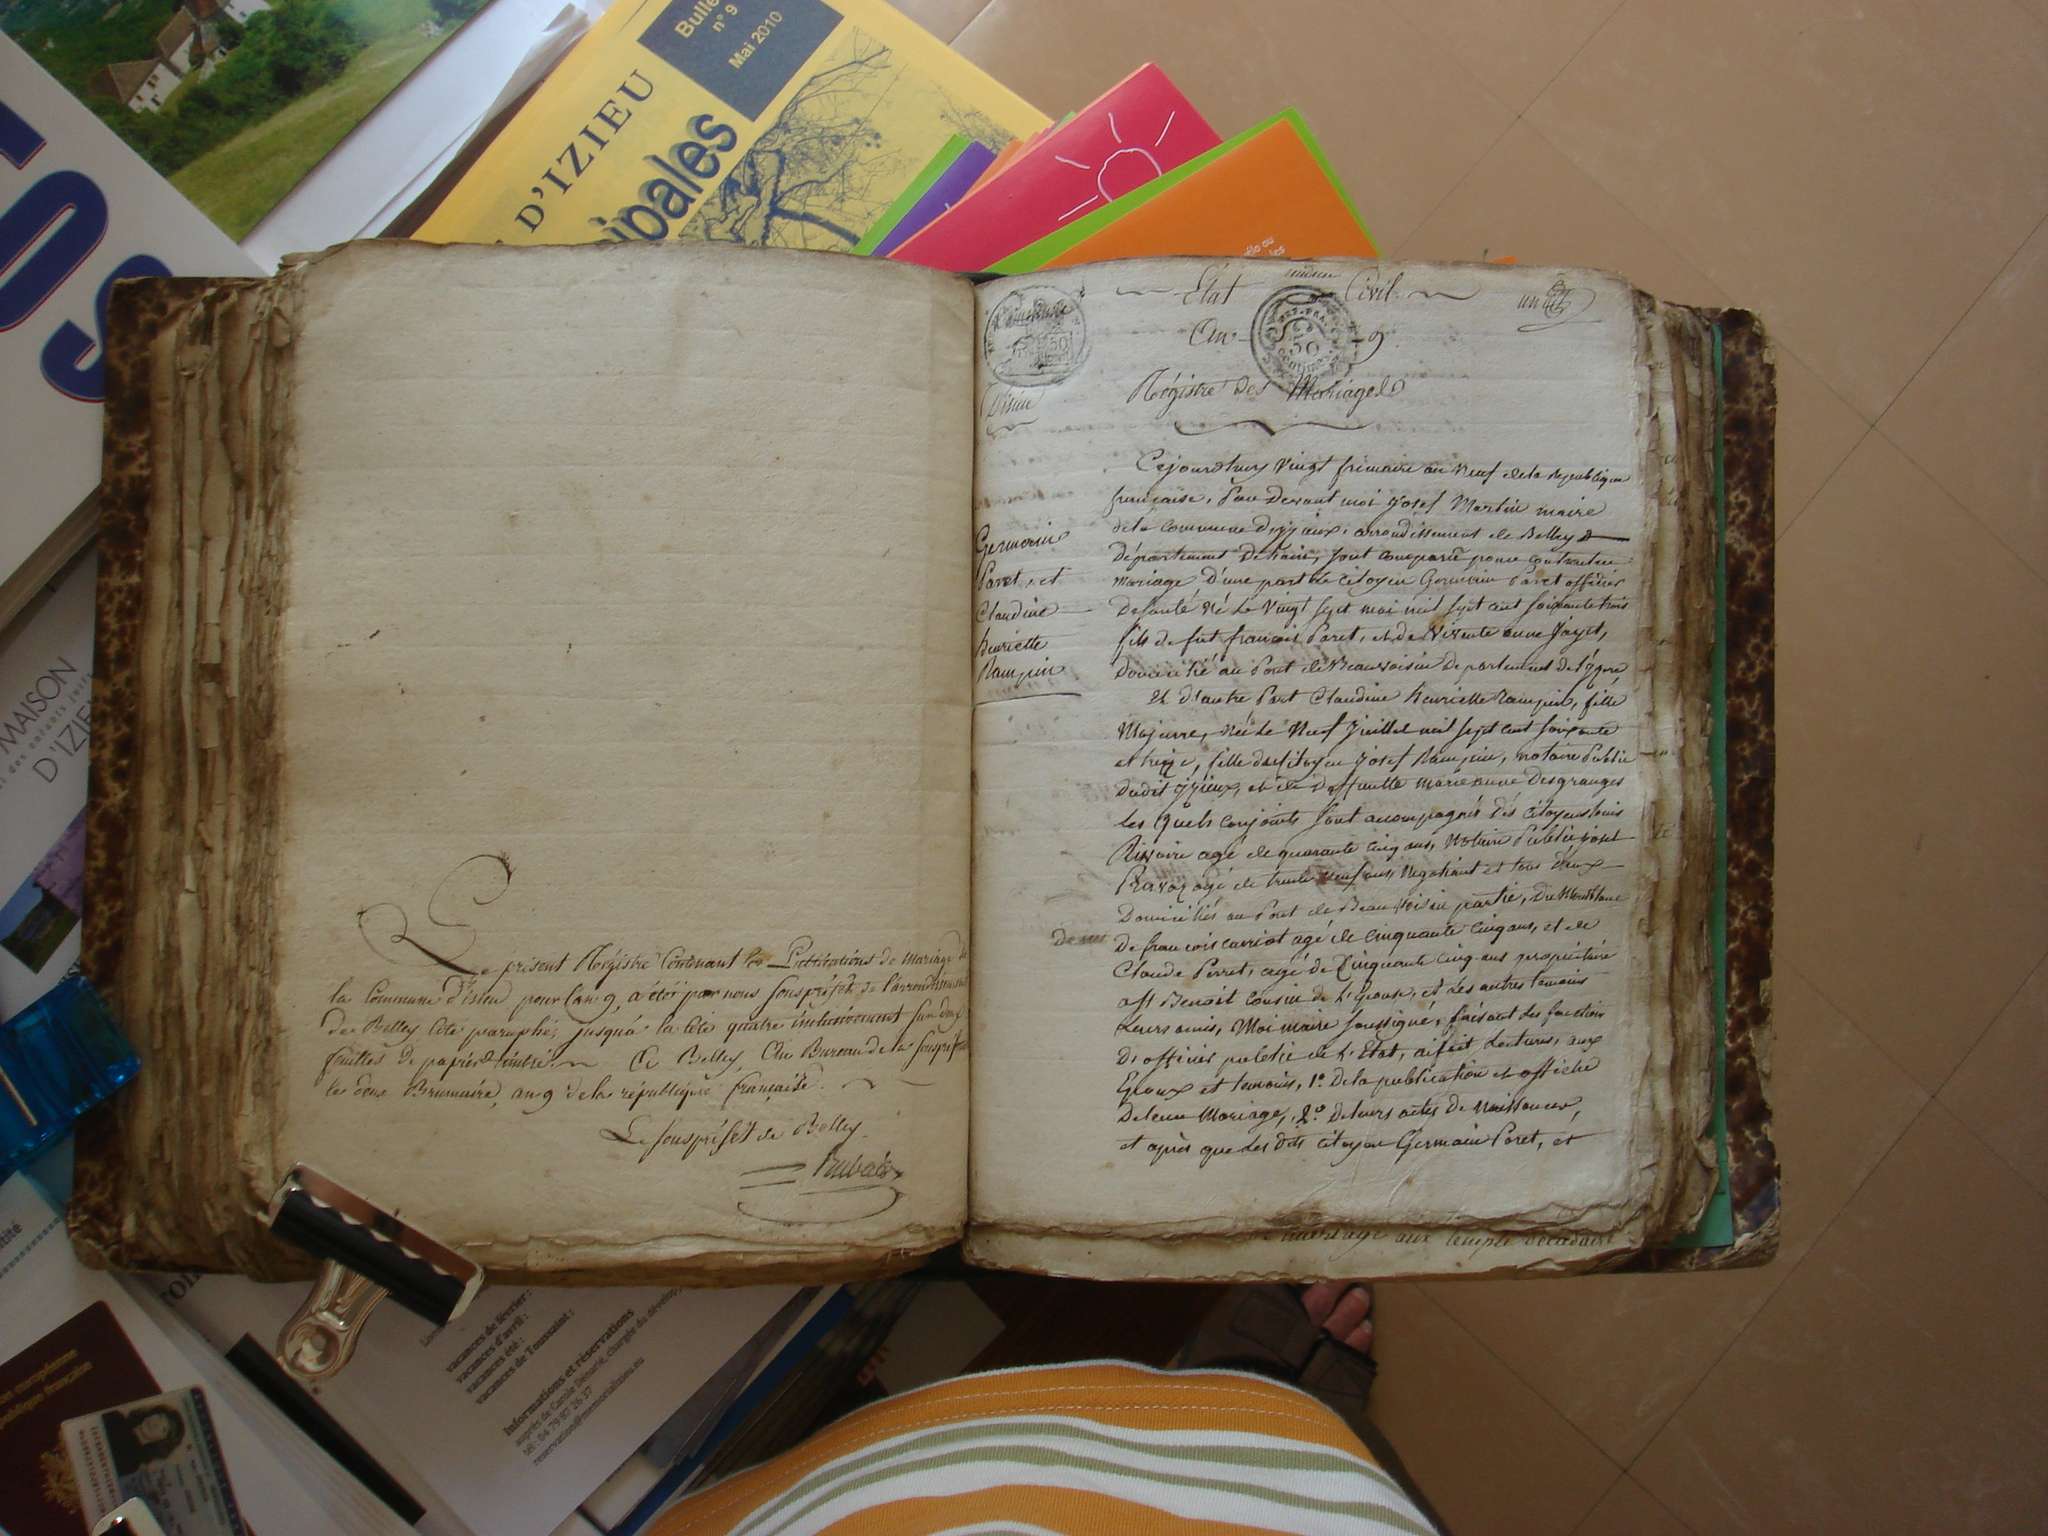 Bulle
n° 9
Mai 2010
D'IZIEU
ipales
MAISON
D'IZIE
Le présent Régistre Contenant les Publications de Mariage de
la Commune d'isieu pour l'an 9, a été par nous sous préfet de l'arrondissement
de Belley coté paraphé, jusqu'à la côte quatre inclusivement sur deux
feuilles de papier timbré. A Belley, Au Bureau de la Sous préfect
le deux Brumaire, an 9 de la république française.
Le sous préfet de Belley
État Civil
An 9.
50
Régistre des Mariages
D'isieu
Germain
Paret, et
Claudine
henriette
Rampin
Cejourdhuy vingt frimaire an Neuf de la republique
française, Par Devant moi Josef Martin maire
de la commune Dizieux, arrondissement de Belley
Département De Lain, sont comparu pour contracter
mariage D'une part Le citoyen Germain Paret officier
De santé Né Le Vingt sept mai mil sept cent soixante trois
fils de fut françois Paret, et de Vivente anne Jayet,
Domicilié au Pont de Beauvoisin Departement de l'izere,
Et D'autre Part Claudine henriette Rampin, fille
Majeure, Née Le Neuf Juillet mil sept cent soixante
et treize, fille du citoyen Josef Rampin, notaire Public
Dudit izieux, et de Deffuntte marie anne Desgranges
les quels conjoints sont accompagnés Des citoyens Louis
agé de quarante cinq ans, Notaire Public
Pravaz agé de trente neuf ans, Negotiant et tous deux
Domiciliés au Pont de Beauvoisin partie, Du Montblanc
De francois curriot agé de cinquante cinq ans, et de
Claude Perret, agé de Cinquante cinq ans propriétaire
Benoit cousin de L'Epouse, et Les autres temoins
Leurs amis, Moi maire soussigné, faisant les fonction
D'officier public de L'Etat, ai fait Lecture, aux
Epoux et temoins, 1° De la publication et affiche
De leur Mariage, 2° De leurs actes De Naissance,
et après que Les Dits citoyen Germain Paret, et
aux temple decadaire
vacances de février :
vacances d'avril :
vacances été :
vacances de Toussaint :
Informations et réservations